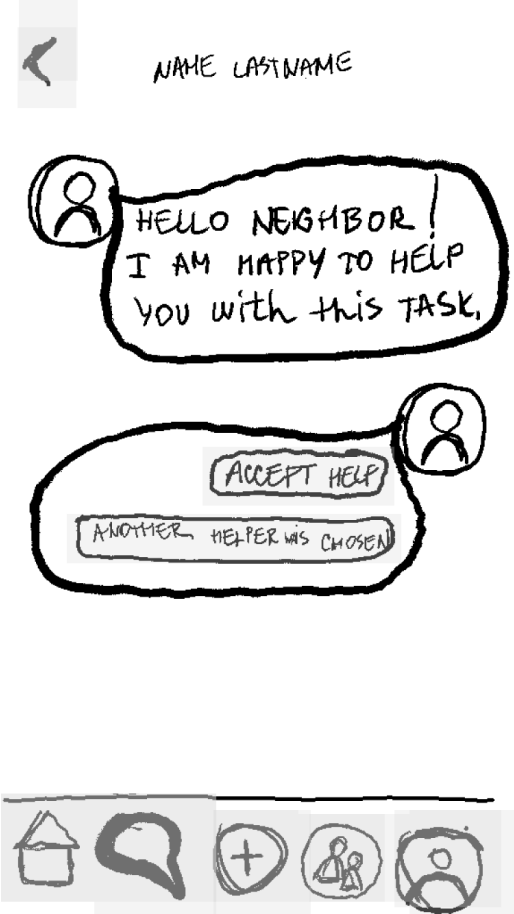 NAME LASTNAME
HELLO NEIGHBOR!
I AM HAPPY TO HELP
YOU with this TASK.
ACCEPT HELP
ANOTHER HELPER WAS CHOSEN